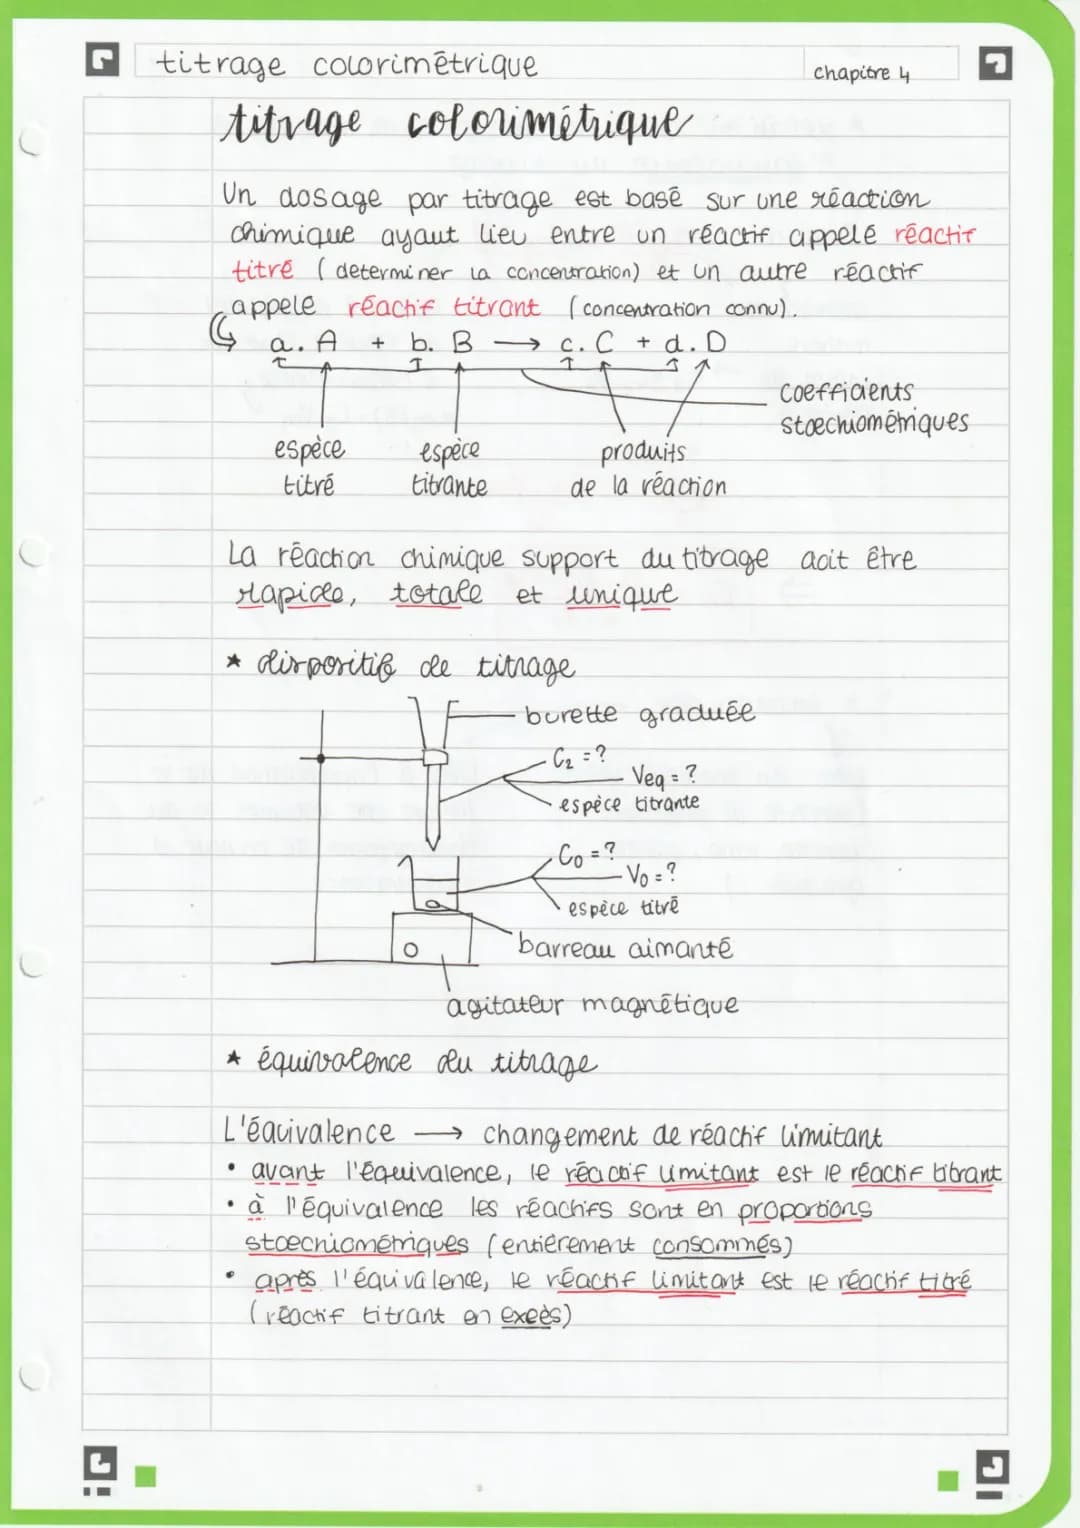 titrage colorimétrique
chapitre 4
titrage colorimétrique
Un dosage par titrage est basé sur une réaction
chimique ayant lieu entre un réactif appelé réactif
titré (determiner la concentration) et un autre réactif
appelé réactif titrant (concentration connu).
a. A + b. B → c. C + d. D
coefficients
stœchiométriques
espèce espèce produits
titré titrante de la réaction
La réaction chimique support du titrage doit être
rapide, totale et unique
* dispositif de titrage
burette graduée
C₂ = ?
Veq = ?
espèce titrante
C₀ = ?
V₀ = ?
espèce titré
barreau aimanté
agitateur magnétique
* équivalence du titrage
L'équivalence → changement de réactif limitant
• avant l'équivalence, le réactif limitant est le réactif titrant
• à l'équivalence les réactifs sont en proportions
stœchiométriques (entièrement consommés)
• après l'équivalence, le réactif limitant est le réactif titré
(réactif titrant en excès)